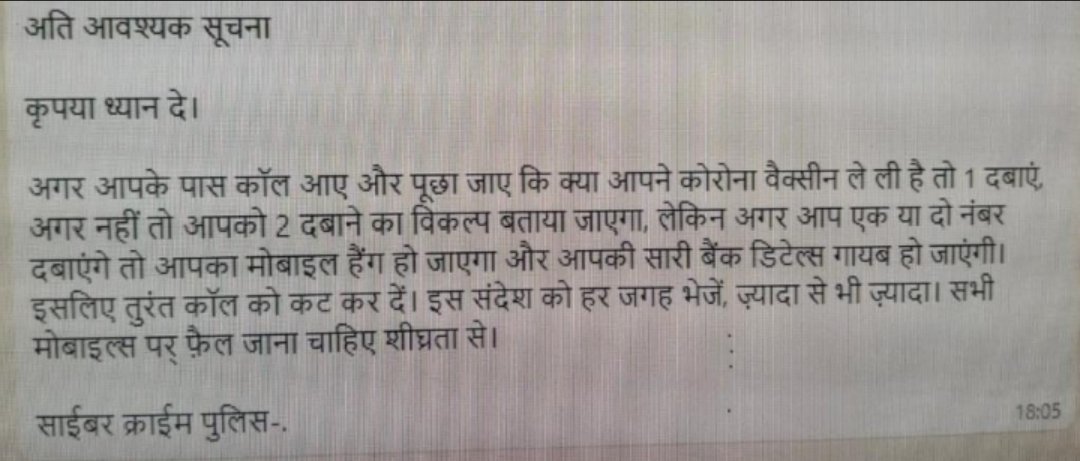 अति आवश्यक सूचना
कृपया ध्यान दे।
अगर आपके पास कॉल आए और पूछा जाए कि क्या आपने कोरोना वैक्सीन ले ली है तो 1 दबाएं,
अगर नहीं तो आपको 2 दबाने का विकल्प बताया जाएगा, लेकिन अगर आप एक या दो नंबर
दबाएंगे तो आपका मोबाइल हैंग हो जाएगा और आपकी सारी बैंक डिटेल्स गायब हो जाएंगी।
इसलिए तुरंत कॉल को कट कर दें। इस संदेश को हर जगह भेजें, ज़्यादा से भी ज़्यादा। सभी
मोबाइल्स पर् फ़ैल जाना चाहिए शीघ्रता से।
साईबर क्राईम पुलिस-.
18:05